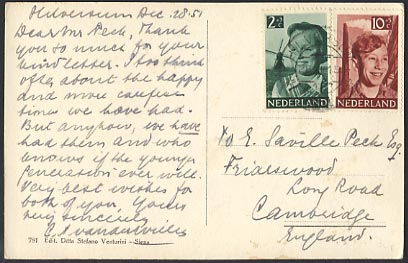 Hilversum Dec. 28.51
Dear Mr Peck, Thank
you so much for your
kind letter. I too think
often about the happy
and more carefree
times we have had.
But anyhow, we have
had them and who
knows if the younger
generation ever will.
Very best wishes for
both of you. Yours
very sincerely
791 Edit. Ditta Stefano Venturini - Siena
2 +3 NEDERLAND
10 +5 NEDERLAND
To E. Saville Peck Esq.
Friarswood
Long Road
Cambridge
England.